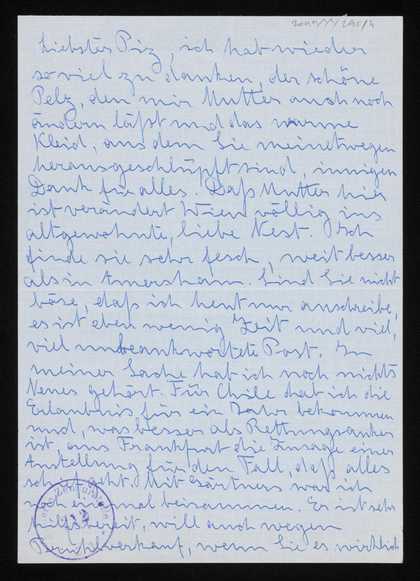 Liebstes Piz, ich hab wieder
so viel zu danken, der schöne
Pelz, den mir Mutter auch noch
ändern läßt und das warme
Kleid, aus dem Sie meinetwegen
herausgeschlüpft sind, innigen
Dank für alles. Daß Mutter hier
ist verändert Wien völlig ins
altgewohnte, liebe Nest. Ich
finde sie sehr fesch, weit besser
als in Amersham. Sind Sie nicht
böse, daß ich heut nur anschreibe,
es ist eben wenig Zeit und viel,
viel unbeantwortete Post. In
meiner Sache hab ich noch nichts
Neues gehört. Für Chile hab ich die
Erlaubnis für ein Jahr bekommen
und, was besser als Rettungsanker
ist, aus Frankfurt die Zusage einer
Anstellung für den Fall, daß alles
schief geht. Mit Gärtners war ich
noch einmal beisammen. Er ist sehr
hilfsbereit, will auch wegen
verkauf, wenn Sie es wirklich